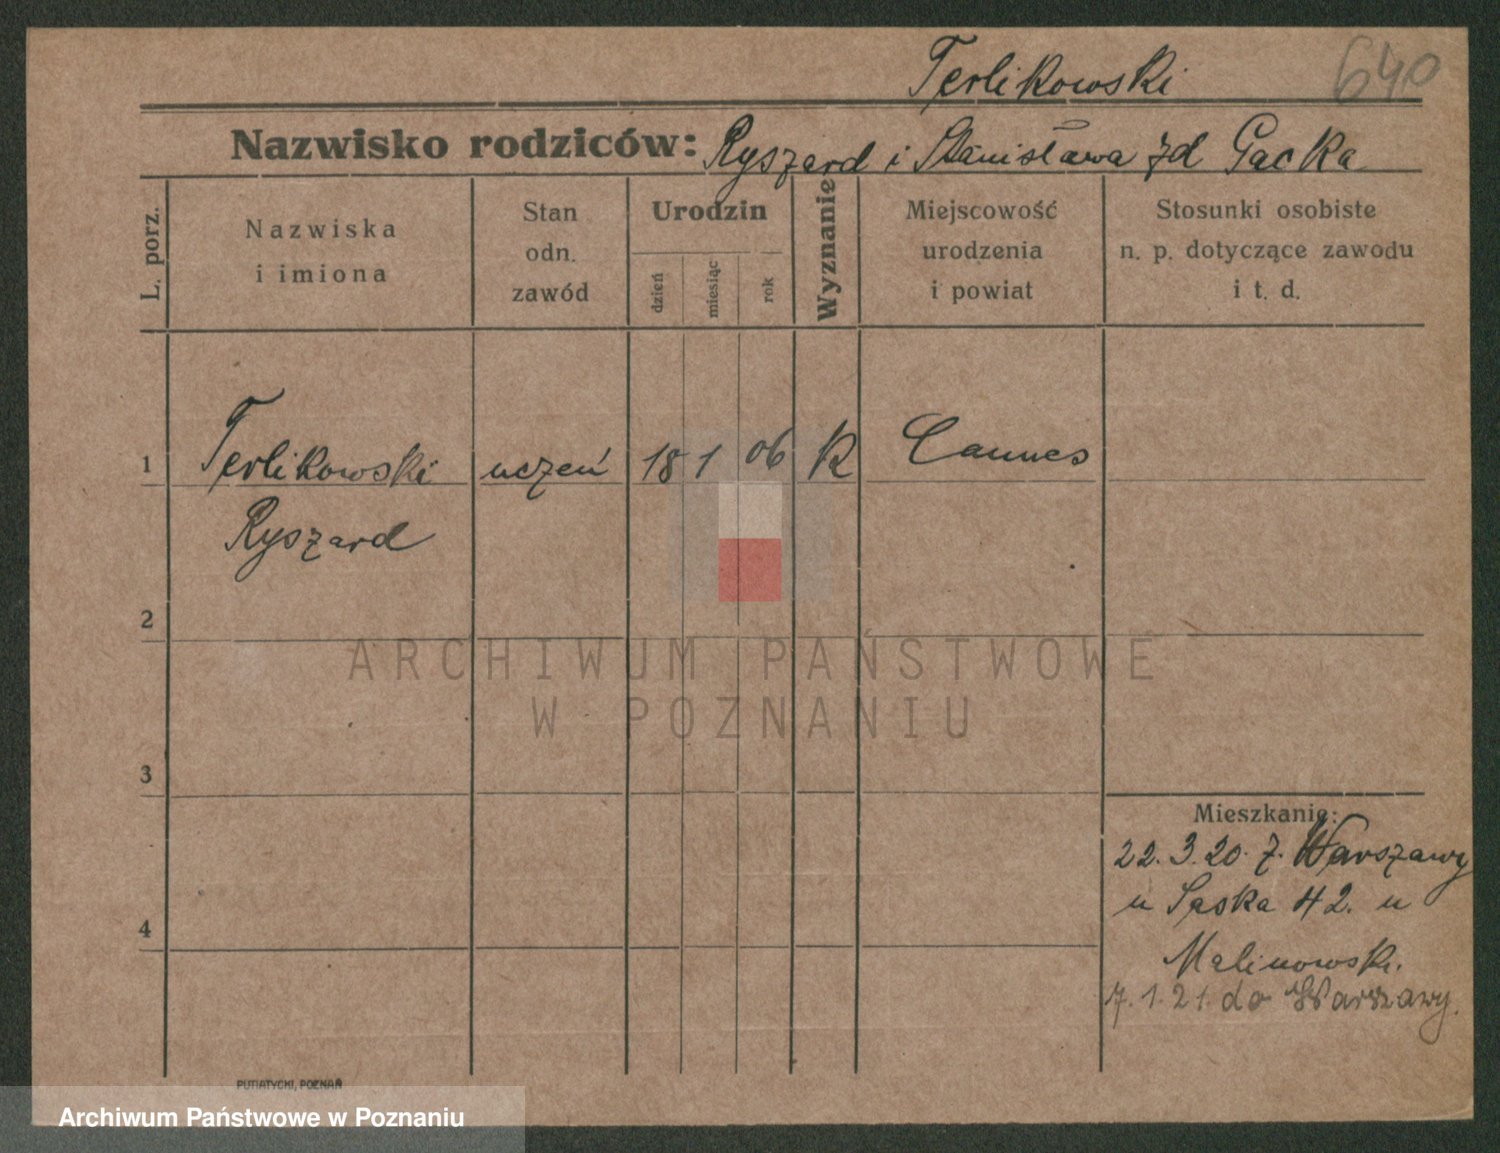 Terlikowski 640
Nazwisko rodziców: Ryszard i Stanisława zd Gacka
L. porz.
Nazwiska
i imiona
Stan
odn.
zawód
Urodzin
dzień
miesiąc
rok
Wyznanie
Miejscowość
urodzenia
i powiat
Stosunki osobiste
n. p. dotyczące zawodu
i t. d.
1 Terlikowski uczeń 18 1 06 K Cannes
Ryszard
2
ARCHIWUM PAŃSTWOWE
W POZNANIU
3
Mieszkanie:
22.3.20. z. Warszawy
4 u 42. u
Malinowski.
7.1.21. do Warszawy.
PUTIATYCKI, POZNAŃ
Archiwum Państwowe w Poznaniu